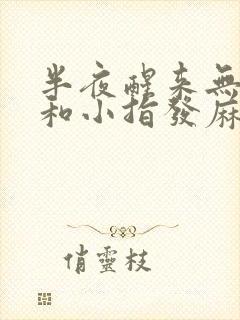 半夜醒来無
和小指發麻
俏靈枝